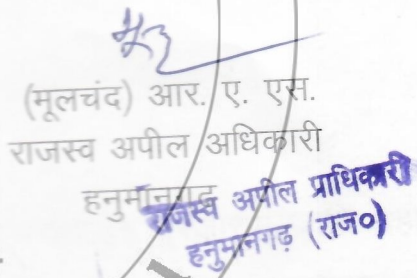 (मूलचंद) आर. ए. एस.
राजस्व अपील अधिकारी
हनुमानगढ़
राजस्व अपील प्राधिकारी
हनुमानगढ़ (राज०)